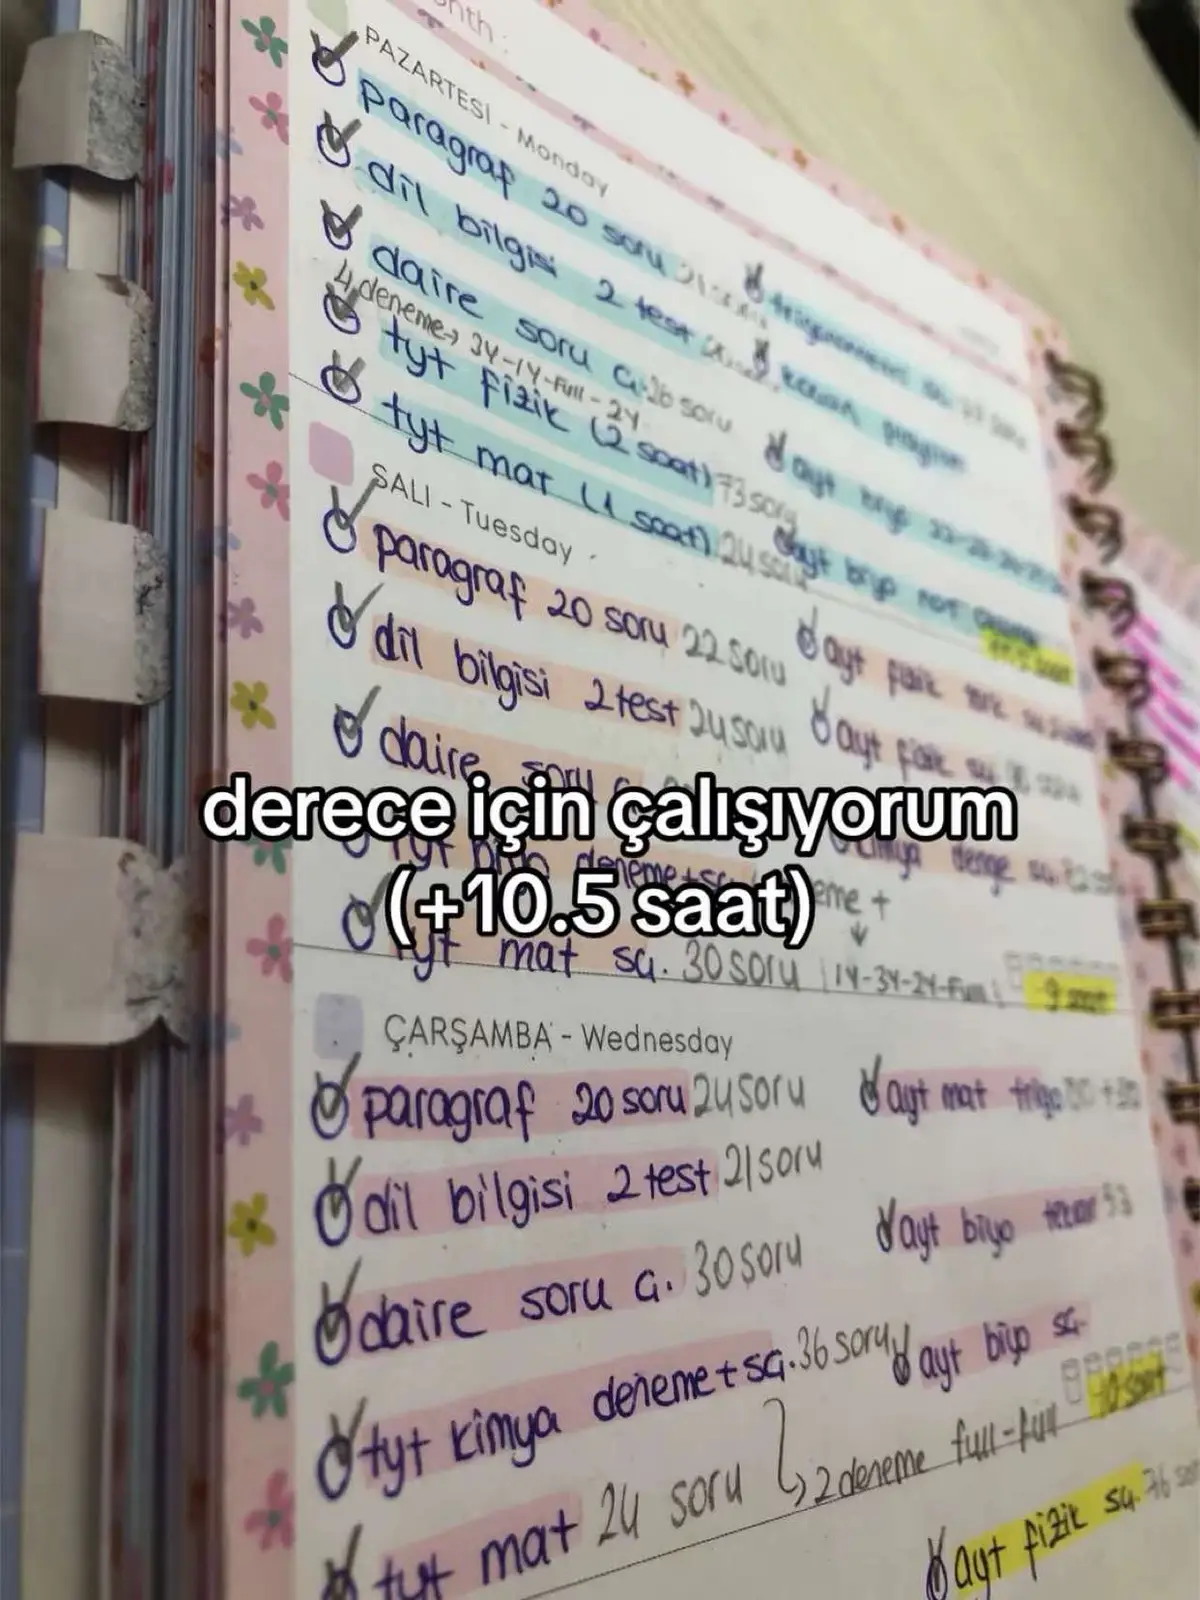 onth:
PAZARTESİ - Monday
paragraf 20 soru
dil bilgisi 2 test
daire soru ç. 26 soru
4 deneme → 3Y-1Y-Full-2Y
tyt fizik (2 saat) 73 soru
tyt mat (1 saat) 24 soru
ayt biyo
ayt biyo not
SALI - Tuesday
paragraf 20 soru 22 soru
ayt fizik
dil bilgisi 2 test 24 soru
ayt fizik
daire soru ç.
derece için çalışıyorum
(+10.5 saat)
tyt biyo deneme+sç.
kimya denge sç.
tyt mat sç. 30 soru
1Y-3Y-2Y-Full
9 saat
ÇARŞAMBA - Wednesday
paragraf 20 soru 24 soru
ayt mat trigo
dil bilgisi 2 test 21 soru
ayt biyo tekrar 53
daire soru ç. 30 soru
tyt kimya deneme+sç. 36 soru
ayt biyo sç.
10 saat
tyt mat 24 soru
2 deneme full-full
ayt fizik sç. 76